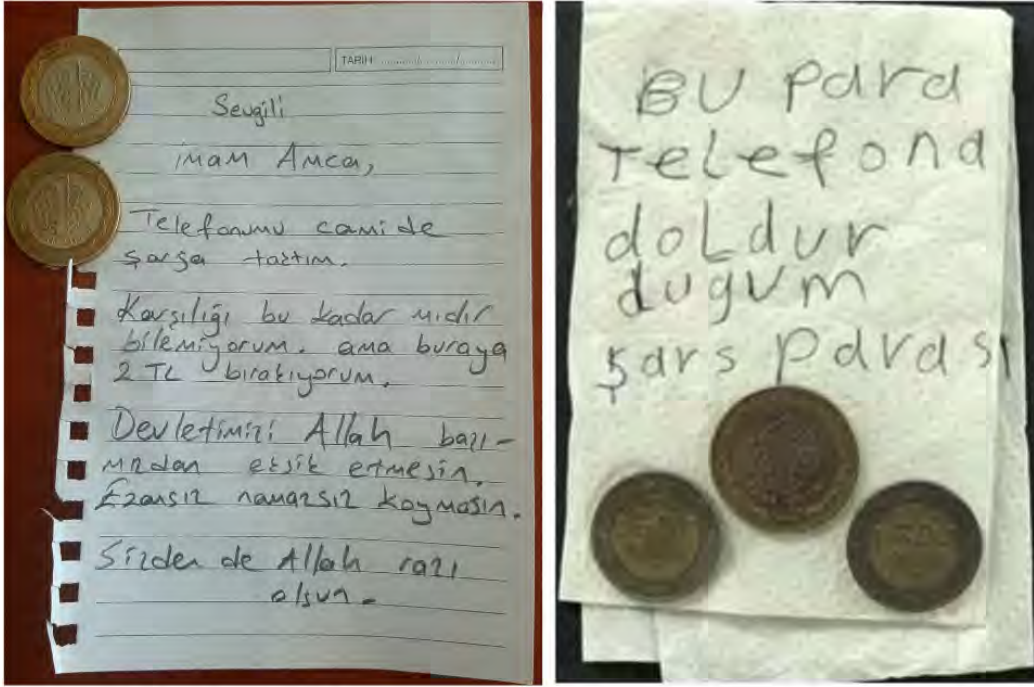 TARİH
Sevgili
imam Amca,
Telefonumu camide
şarşa taktım.
Karşılığı bu kadar mıdır
bilemiyorum. ama buraya
2 TL bırakıyorum.
Devletimizi Allah başı-
mızdan eksik etmesin.
Ezansız namazsız koymasın.
Sizden de Allah razı
olsun.
BU para
Telefona
doLdur
dugum
şars parası